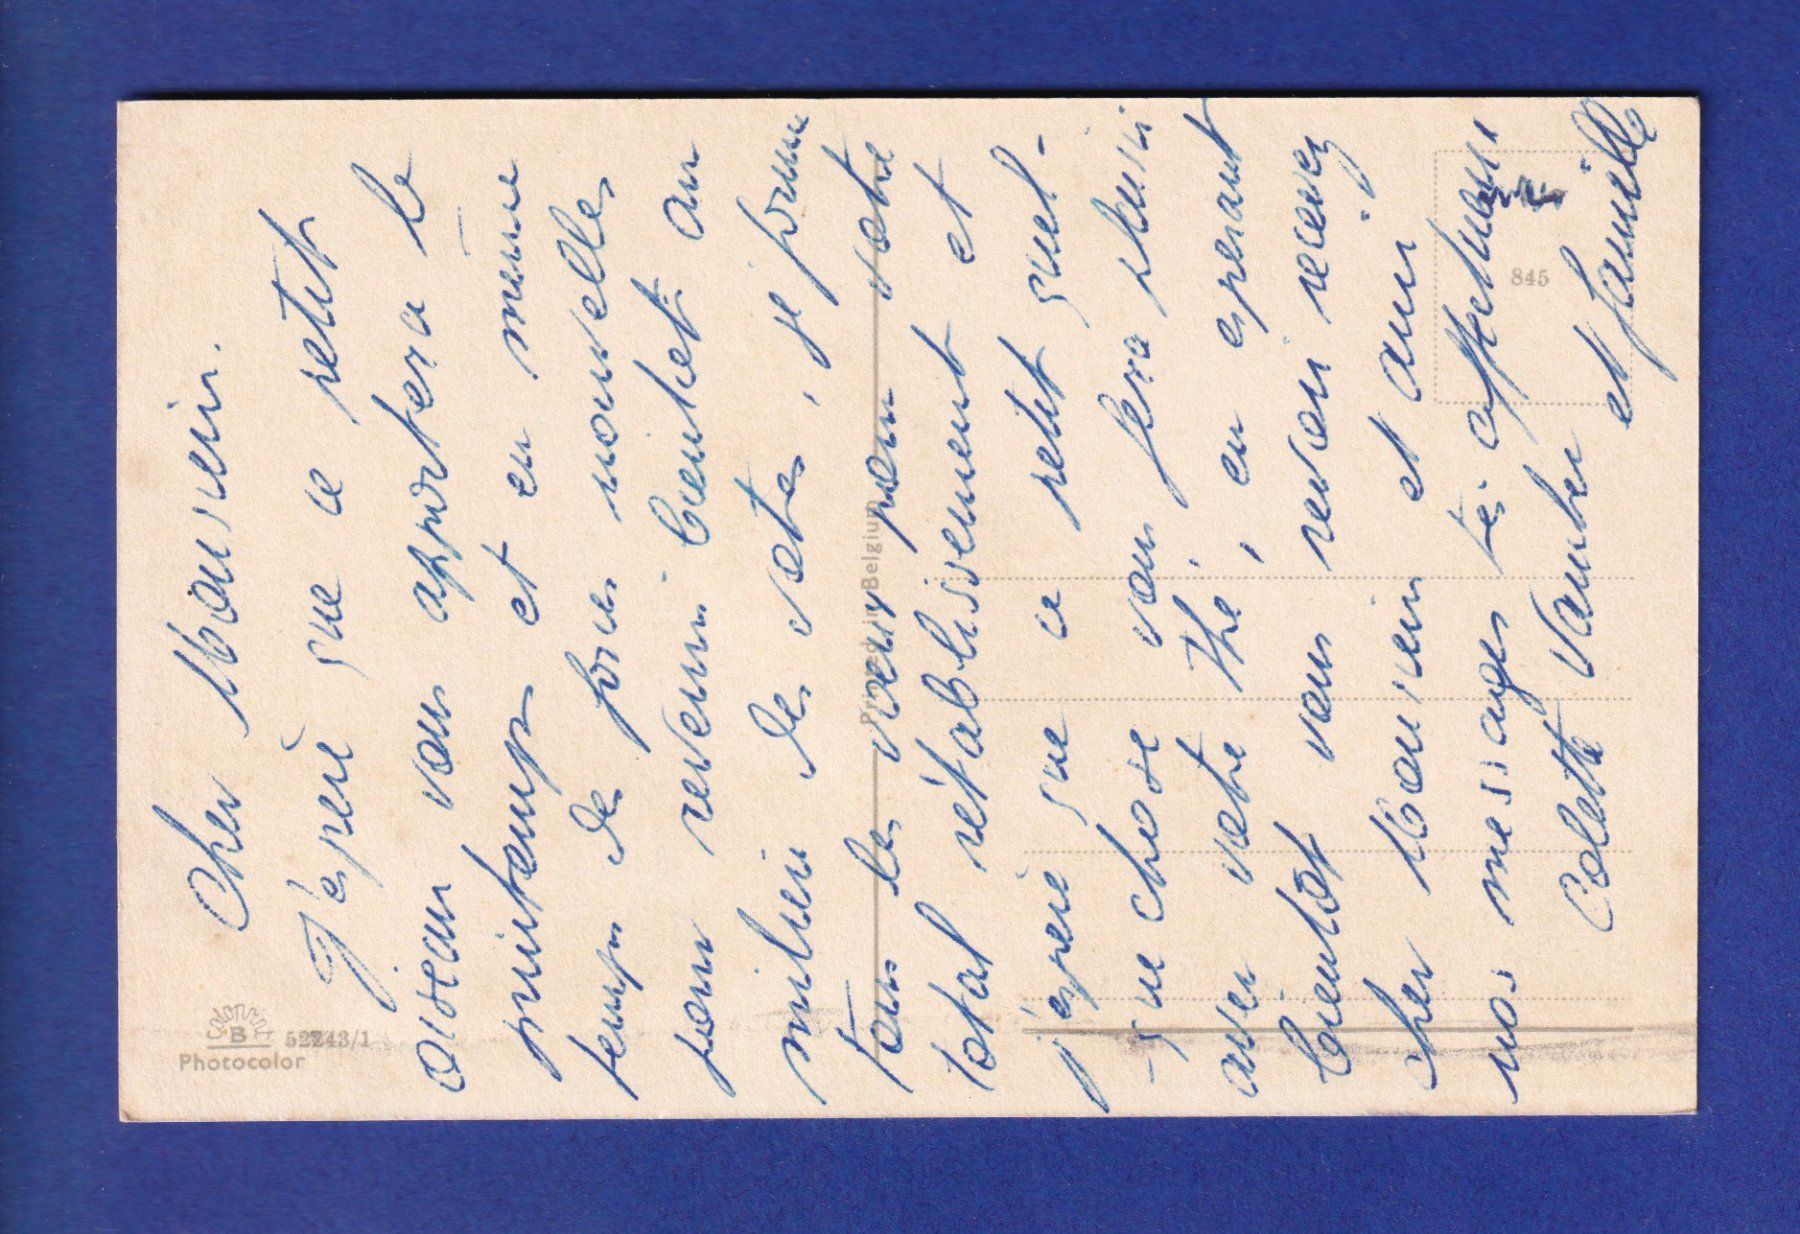 Cher Monsieur.
J'espère que ce petit
oiseau vous apportera le
printemps et en même
temps de forces nouvelles
pour revenir bientôt au
milieu de vates, je forme
Tous les vœux pour votre
total rétablissement et
j'espère que ce petit quel-
-que chose vous fera plaisir
avec votre thé, en espérant
bientôt vous revoir recevez
cher Monsieur et ami
nos messages très affectueux
Colette Vamber
et famille
B
52243/1
Photocolor
Printed in Belgium
845